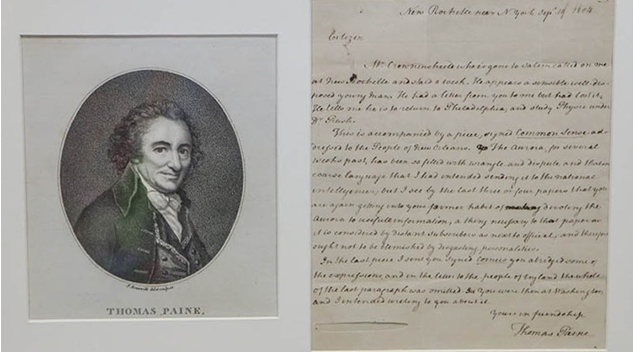 THOMAS PAINE.
New Rochelle near N. York Sepr 1804
Citizen
Mr. Crowninshield who is gone to Salem called on me
at New Rochelle and staid a week. He appears a sensible well dis-
posed young man. He had a letter from you to me but had lost it.
He tells me he is to return to Philadelphia and study Physic under
Dr Rush.
This is accompanied by a piece, signed Common Sense ad-
dressed to the People of New Orleans. The Aurora for several
weeks past, has been so filled with wrangle and dispute and that in
coarse language that I had intended sending it to the national
intelligencer, but I see by the last three or four papers that you
are again getting into your former habit of devoting the
Aurora to usefull information; a thing necessary to that paper as
it is considered by distant subscribers as next to official, and therefore
ought not to be blemished by disgusting personalities.
In the last piece I sent you signed Comus you abridged some of
the expressions and in the letter to the people of England the whole
of the last paragraph was omitted. You were then at Washington
and I intended writing to you about it.
Yours in friendship
Thomas Paine